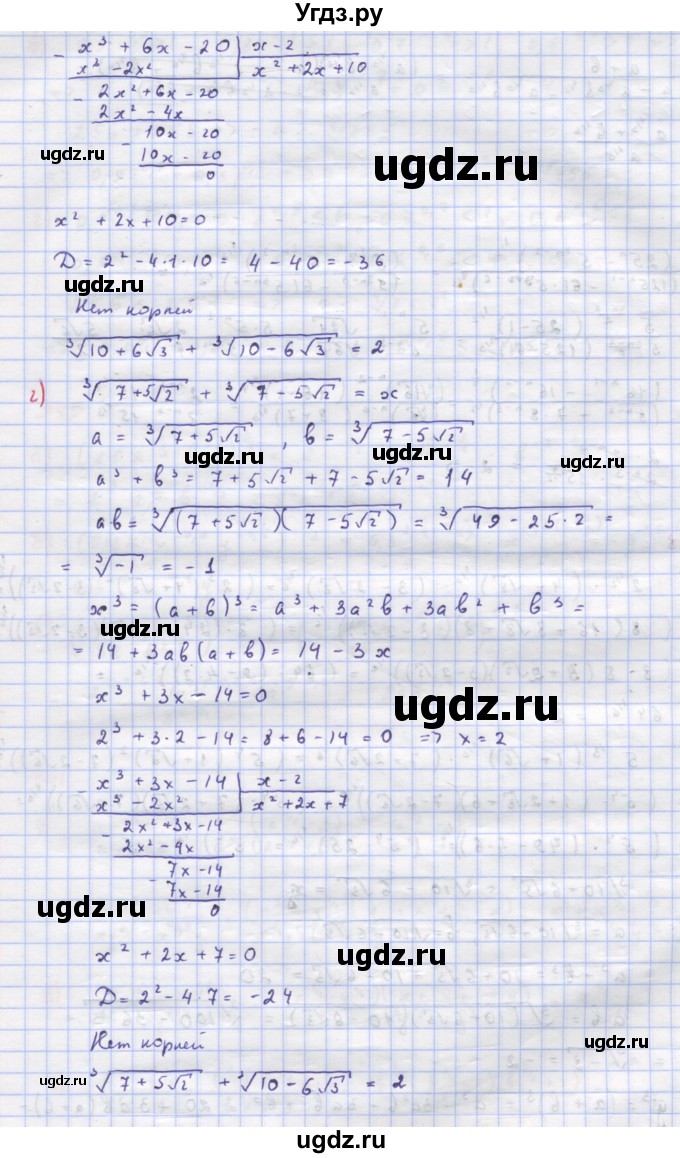 Угдз.ру
- x³ + 6x - 20 | x - 2
x² - 2x² | x² + 2x + 10
- 2x² + 6x - 20
2x² - 4x
- 10x - 20
10x - 20
0
ugdz.ru
ugdz.ru
x² + 2x + 10 = 0
D = 2² - 4·1·10 = 4 - 40 = -36
ugdz.ru
Нет корней
∛(10 + 6√3) + ∛(10 - 6√3) = 2
г) ∛(7 + 5√2) + ∛(7 - 5√2) = x
a = ∛(7 + 5√2), b = ∛(7 - 5√2)
ugdz.ru
ugdz.ru
a³ + b³ = 7 + 5√2 + 7 - 5√2 = 14
ab = ∛((7 + 5√2)(7 - 5√2)) = ∛(49 - 25·2) =
= ∛(-1) = -1
x³ = (a + b)³ = a³ + 3a²b + 3ab² + b³ =
ugdz.ru
= 14 + 3ab(a + b) = 14 - 3x
x³ + 3x - 14 = 0
ugdz.ru
2³ + 3·2 - 14 = 8 + 6 - 14 = 0 => x = 2
- x³ + 3x - 14 | x - 2
x³ - 2x² | x² + 2x + 7
- 2x² + 3x - 14
2x² - 4x
- 7x - 14
7x - 14
0
ugdz.ru
x² + 2x + 7 = 0
ugdz.ru
D = 2² - 4·7 = -24
Нет корней
ugdz.ru
ugdz.ru
∛(7 + 5√2) + ∛(10 - 6√3) = 2
ugdz.ru
ugdz.ru